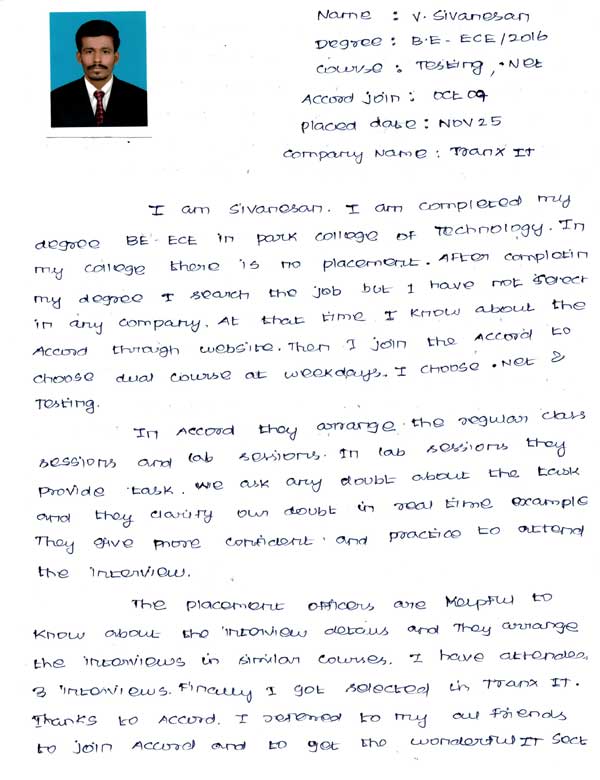 Name : V. Sivanesan
Degree : B.E - ECE / 2016
Course : Testing, .Net
Accord join : Oct 09
Placed date : NOV 25
Company Name : Tranx IT
I am Sivanesan. I am completed my
degree BE-ECE in park college of Technology. In
my college there is no placement. After completin
my degree I search the job but I have not select
in any company. At that time I know about the
Accord through website. Then I join the Accord to
choose dual course at weekdays. I choose .Net &
Testing.
In Accord they arrange the regular class
sessions and lab sessions. In lab sessions they
provide task. We ask any doubt about the task
and they clarify our doubt in real time example
They give more confident and practice to attend
the interview.
The placement officers are Helpful to
know about the interview details and They arrange
the interviews in similar courses. I have attended
3 interviews. Finally I got selected in Tranx IT.
Thanks to Accord. I referred to my all friends
to join Accord and to get the wonderful IT Sect